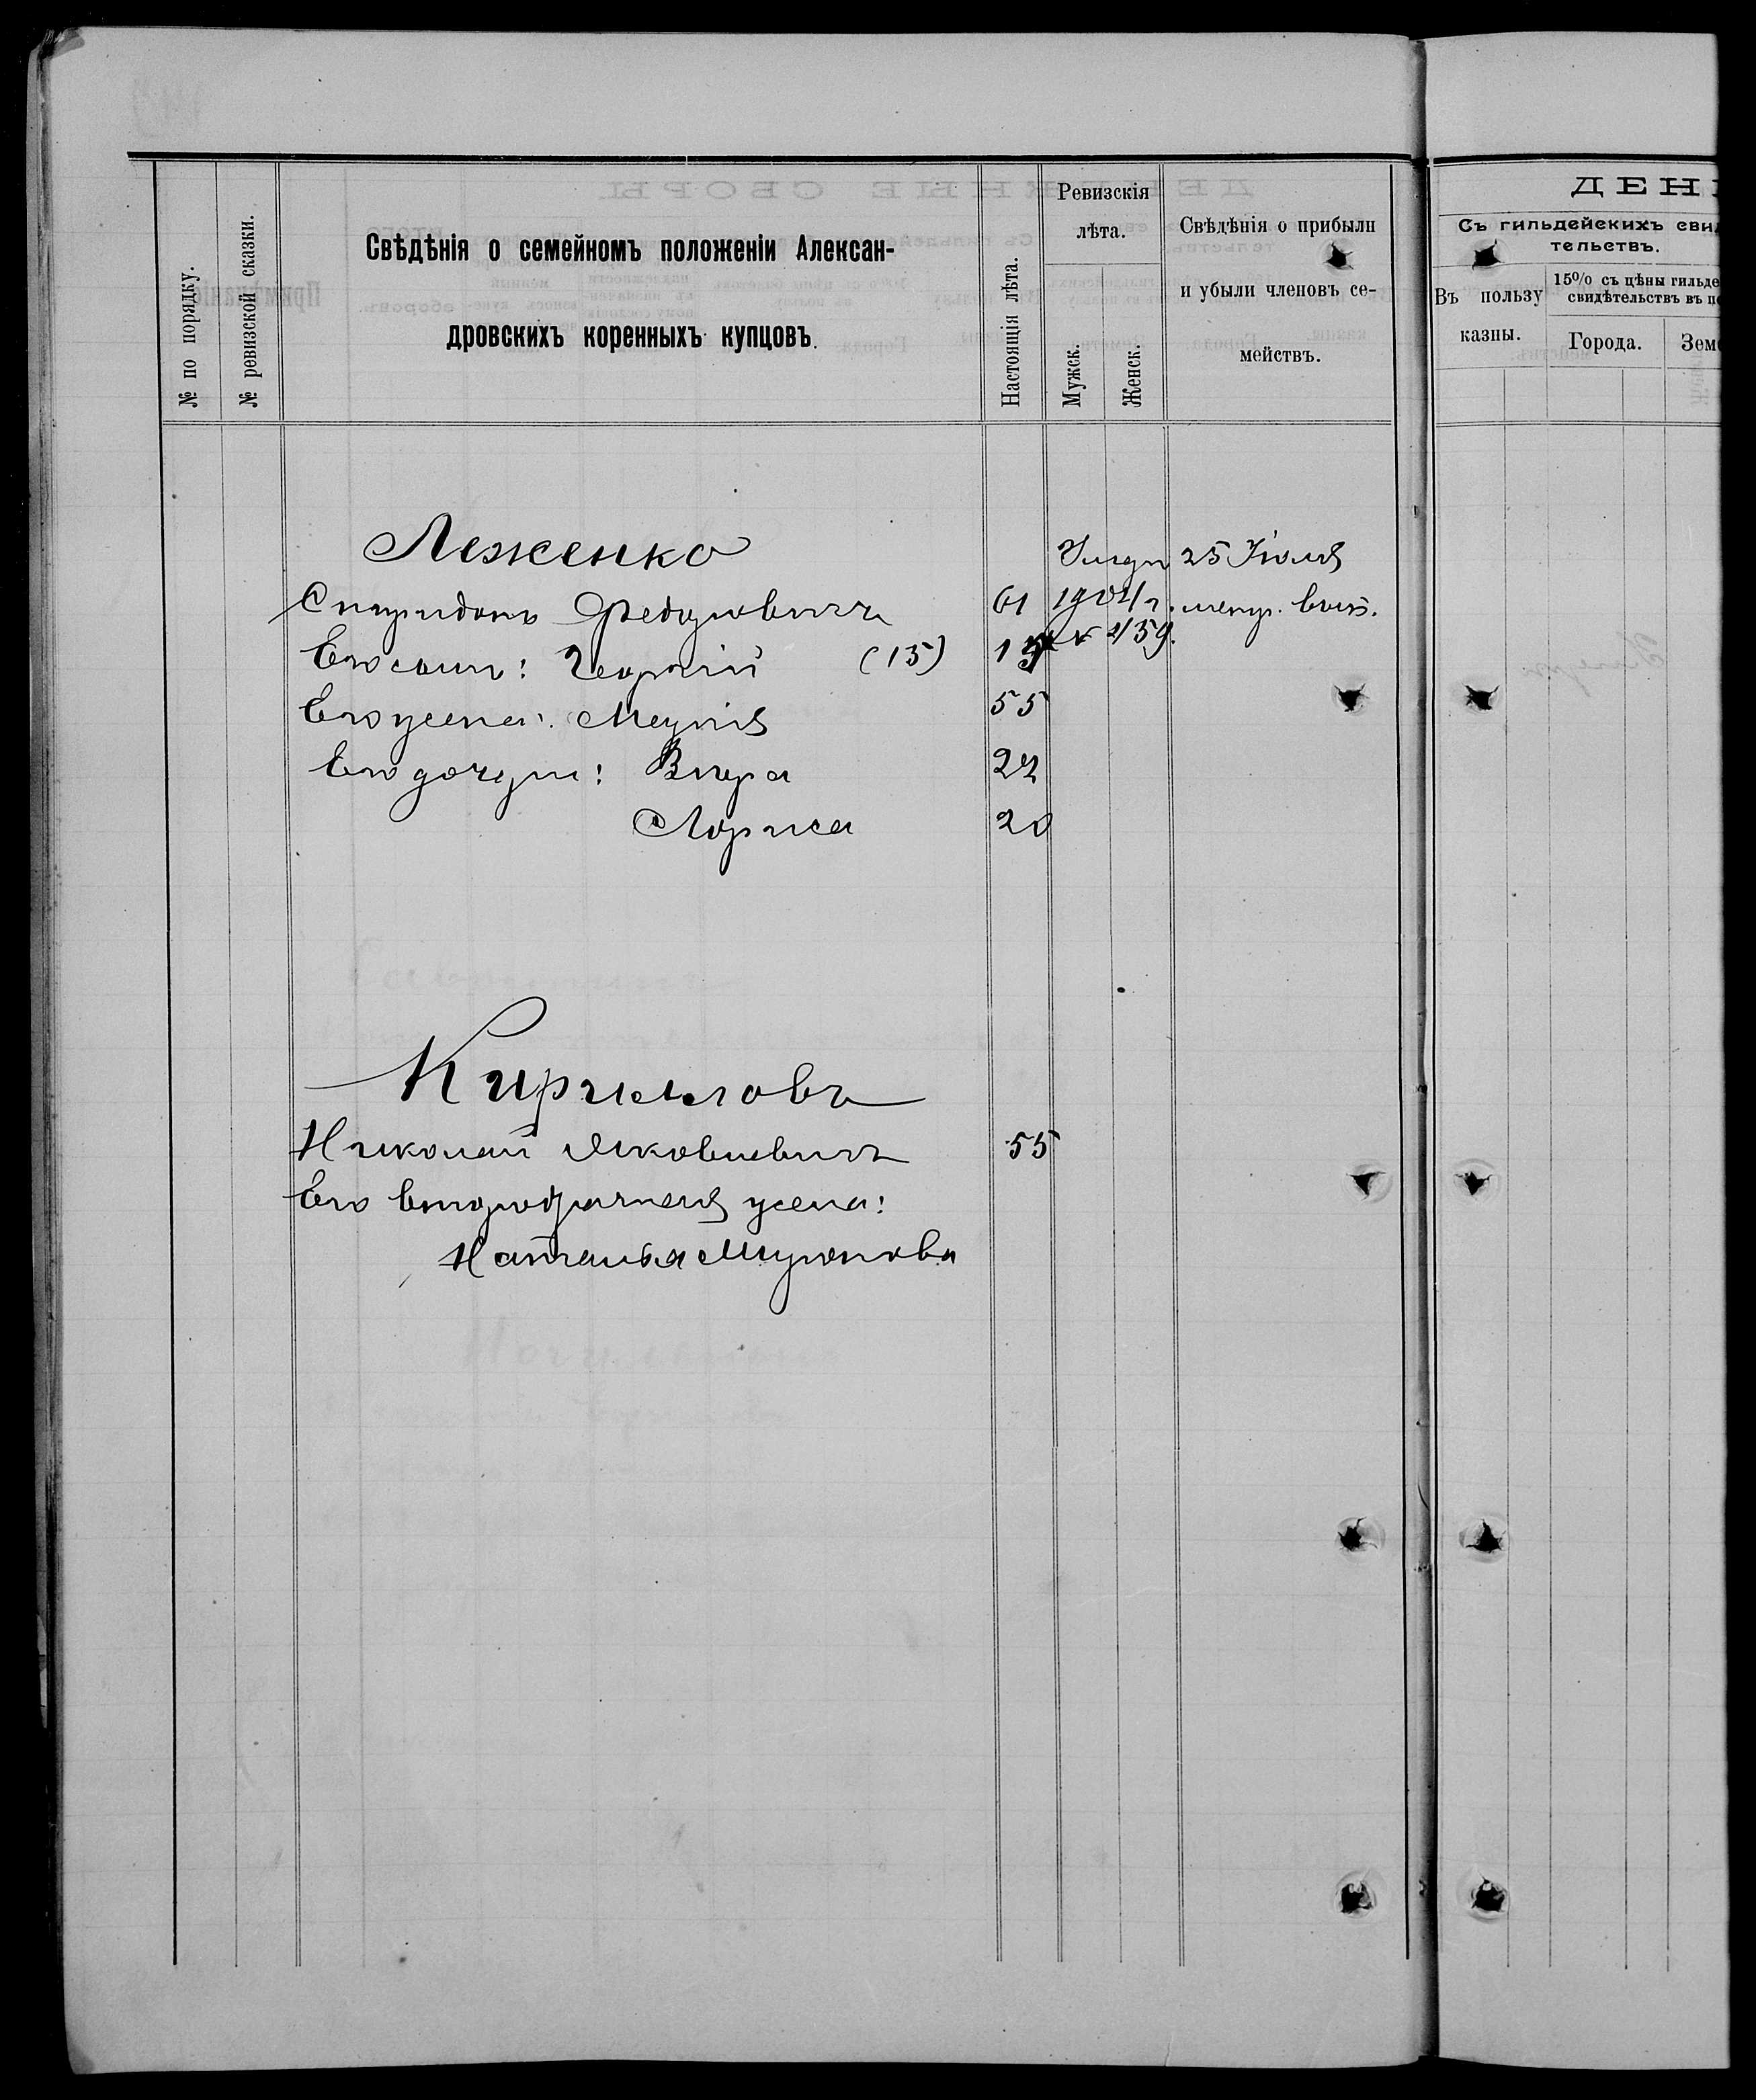 № по порядку.
№ ревизской сказки.
Свѣдѣнія о семейномъ положеніи Алексан-
дровскихъ коренныхъ купцовъ.
Настоящія лѣта.
Ревизскія
лѣта.
Мужск.
Женск.
Свѣдѣнія о прибыли
и убыли членовъ се-
мействъ.
ДЕН
Съ гильдейскихъ сви
тельствъ.
Въ пользу
казны.
15% съ цѣны гильде
свидѣтельствъ въ по
Города.
Зем
Леженко
Умеръ 25 Іюля
Спиридонъ Федоровичъ 61 1904 г. метр. вып.
Его сынъ: Георгій (15) 15 № 459.
Его жена: Марія 55
Его дочери: Вѣра 22
Лариса 20
Кирилловъ
Николай Яковлевичъ 55
Его второбрачная жена:
Наталья Миронова